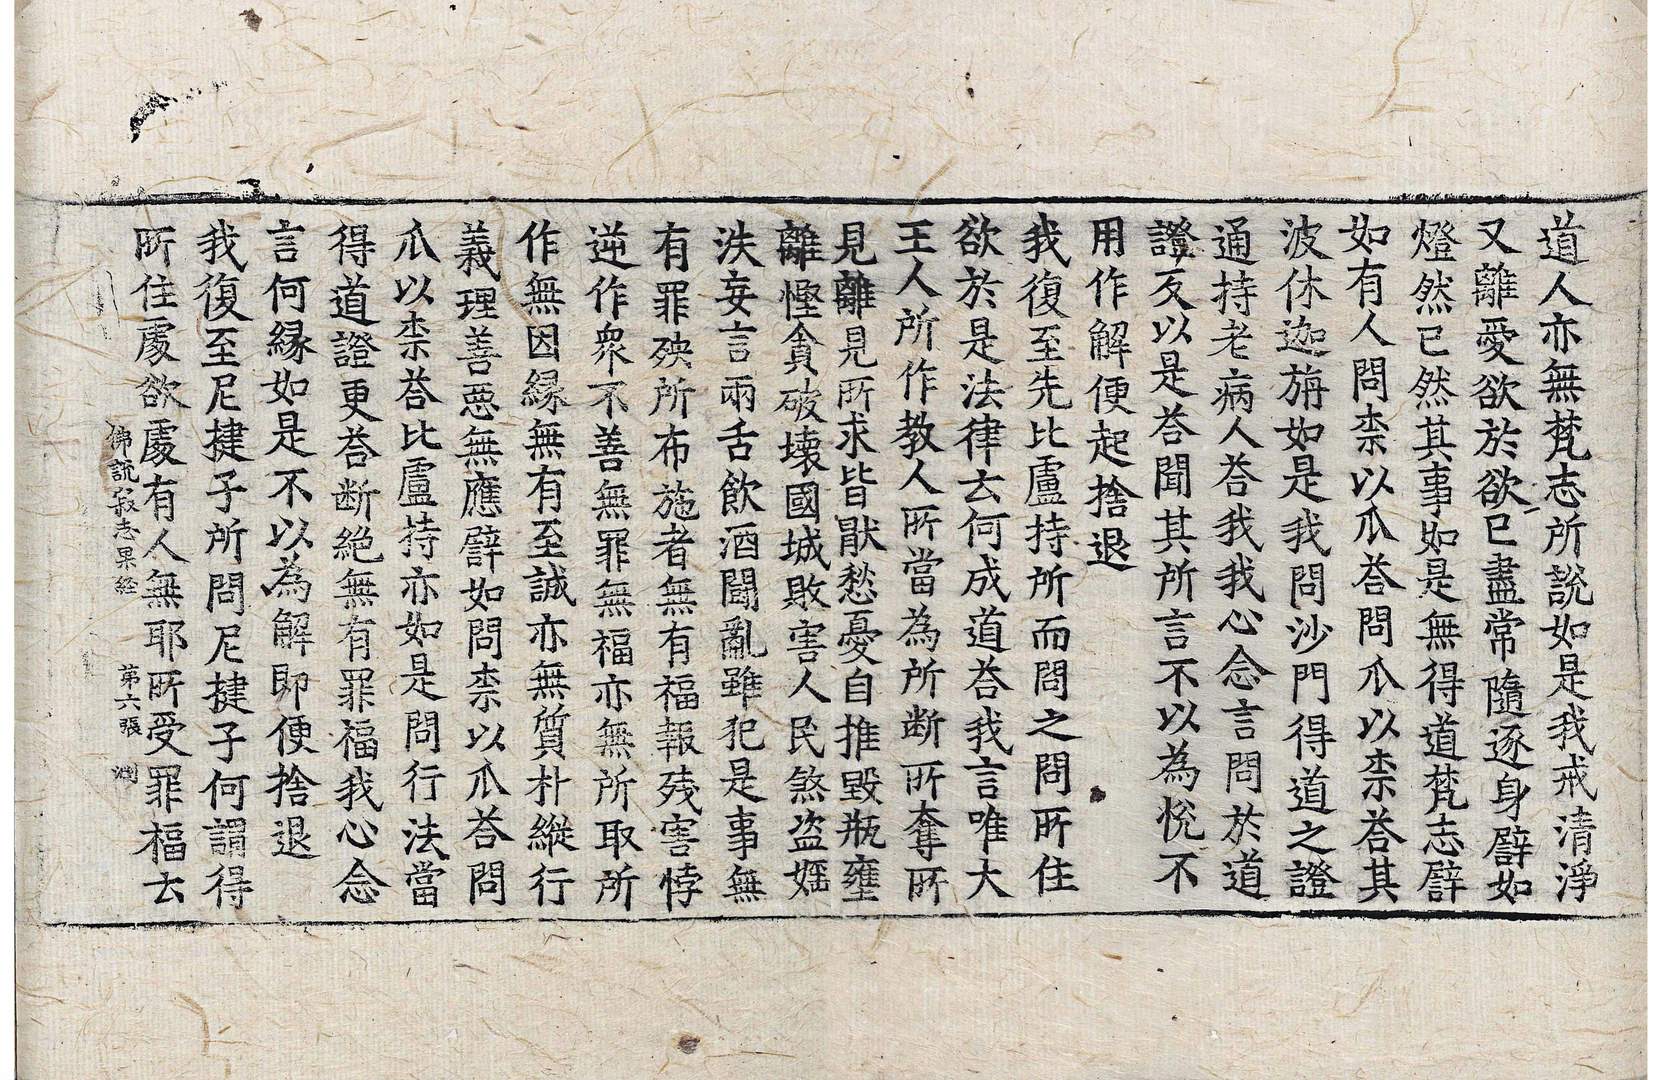 道人亦無梵志所說如是我戒清淨
又離愛欲於欲已盡常隨逐身譬如
燈然已然其事如是無得道梵志譬
如有人問柰以瓜荅問瓜以柰荅其
波休迦旃如是我問沙門得道之證
通持老病人荅我我心念言問於道
證反以是荅聞其所言不以為悅不
用作解便起捨退
我復至先比盧持所而問之問所住
欲於是法律去何成道荅我言唯大
王人所作教人所當為所断所奪所
見離見所求皆猒愁憂自推毀瓶壅
離慳貪破壞國城敗害人民煞盜婬
泆妄言兩舌飲酒鬪亂雖犯是事無
有罪殃所布施者無有福報残害悖
逆作衆不善無罪無福亦無所取所
作無因縁無有至誠亦無質朴縱行
義理善惡無應譬如問柰以瓜荅問
瓜以柰荅比盧持亦如是問行法當
得道證更荅断絶無有罪福我心念
言何縁如是不以為解即便捨退
我復至尼揵子所問尼揵子何謂得
所住處欲處有人無耶所受罪福去
佛說寂志果経 第六張 淵